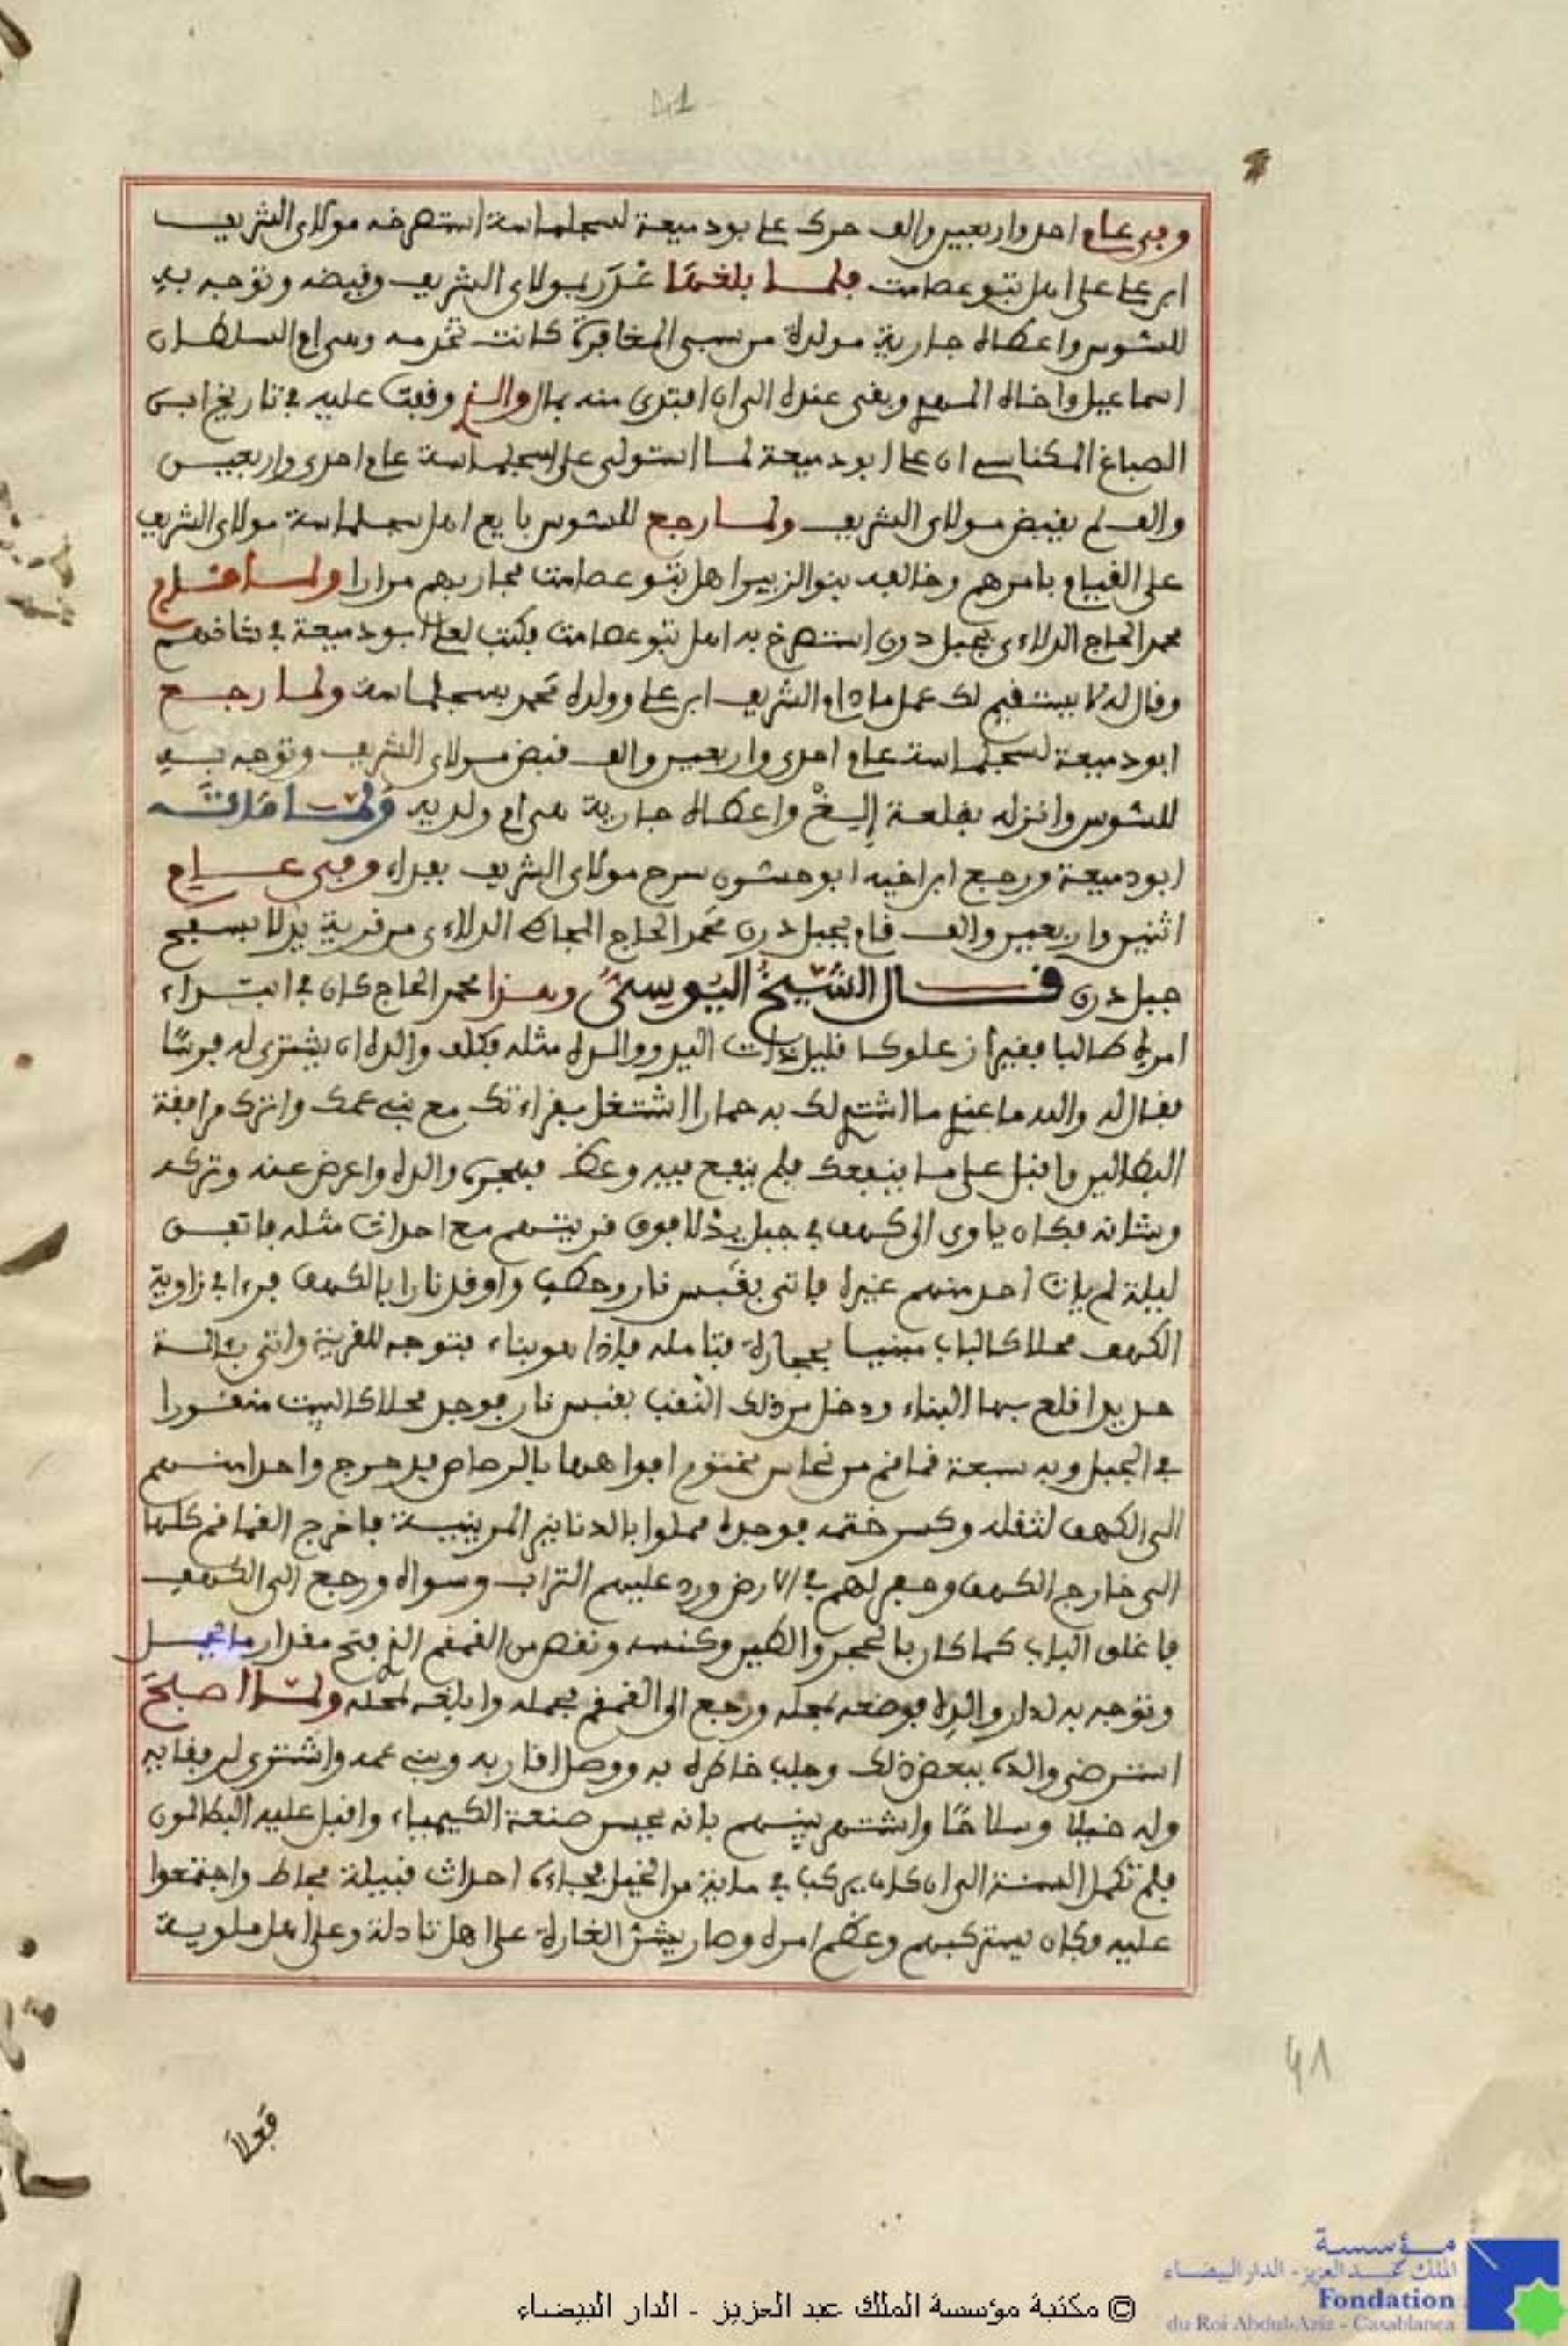 41
وفي عام احد واربعين والف حرك علي بودميعة لسجلماسة استصرخه مولاي الشريف
ابن علي على اهل تبوعصامت فلما بلغها غدر بمولاي الشريف وقبضه وتوجه به
للسوس واعطاه جارية مولدة من سبي المغافرة كانت تخدمه وهي ام السلطان
اسماعيل واخاه المهدي وبقي عنده الى ان افتدى منه بمال والذي وقفت عليه في تاريخ ابن
الصباغ المكناسي ان علي ابودميعة لما استولى على سجلماسة عام احدى واربعين
والف لم يقبض مولاي الشريف ولما رجع للسوس بايع اهل سجلماسة مولاي الشريف
على القيام بامرهم وخالفه بنوا الزبير اهل تبوعصامت فحاربهم مرارا ولما قام
محمد الحاج الدلاءي بجبل درن استصرخ به اهل تبوعصامت فكتب لعلي ابودميعة في شانهم
وقال له لا يستقيم لك عمل مادام الشريف ابن علي وولده محمد بسجلماسة ولما رجع
ابودميعة لسجلماسة عام احدى واربعين والف قبض مولاي الشريف وتوجه به
للسوس وانزله بقلعة إليغ واعطاه جارية هي ام ولديه ولما مات
ابودميعة ورجع ابن اخيه ابوحسون سرح مولاي الشريف بفداء وفي عام
اثنين واربعين والف قام بجبل درن محمد الحاج المجاطي الدلاءي من قرية يدلا بسفح
جبل درن قال الشيخ اليوسي وهذا محمد الحاج كان في ابتداء
امره طالبا فقيرا زعلوكا قليل ذات اليد ووالده مثله فكلف والده ان يشتري له فرسا
فقال له والده ما عندي ما اشتري لك به حمارا اشتغل بقراءتك مع بني عمك واترك مرافقة
البطالين واقبل على ما ينفعك فلم ينفع فيه وعظ فهجره والده واعرض عنه وتركه
وشانه فكان ياوي الى كهف في جبل يدلا فوق قريتهم مع احداث مثله فاتفق
ليلة لم يات احد منهم غيره فاتى بقبس نار وحطب واوقد نارا بالكهف فرءا في زاوية
الكهف محلا كالباب مبنيا بحجارة فتامله فاذا هو بناء فتوجه للقرية واتى بئالة
حديد اقلع بها البناء ودخل من ذلك النقب بقبس نار فوجد محلا كالبيت منقورا
في الجبل وبه سبعة قماقم من نحاس مختوم افواهها بالرصاص فدحرج واحدا منهم
الى الكهف لثقله وكسر ختمه فوجده مملوا بالدنانير المرينية فاخرج القماقم كلها
الى خارج الكهف وحفر لهم في الارض ورد عليهم التراب وسواه ورجع الى الكهف
فاغلق الباب كما كان بالحجر والطين وكنسه ونقص من القمقم الذي فتح مقدار ما يحمل
وتوجه به لدار والده فوضعه بمحله ورجع الى القمقم فحمله وابلغه لمحله ولما أصبح
استرضى والده ببعض ذلك وجلب خاطره به ووصل اقاربه وبني عمه واشترى لرفقائه
وله خيلا وسلاحا واشتهر بينهم بانه يحسن صنعة الكيمياء واقبل عليه البطالون
فلم تكمل السنة الى ان كان يركب في ماية من الخيل فجاءه احداث قبيلة مجاط واجتمعوا
عليه فكان يستركبهم وعظم امره وصار يشن الغارة على اهل تادلة وعلى اهل ملوية
41
فعلا
مؤسسة
الملك عبد العزيز - الدار البيضاء
Fondation
du Roi Abdul-Aziz - Casablanca
© مكتبة مؤسسة الملك عبد العزيز - الدار البيضاء